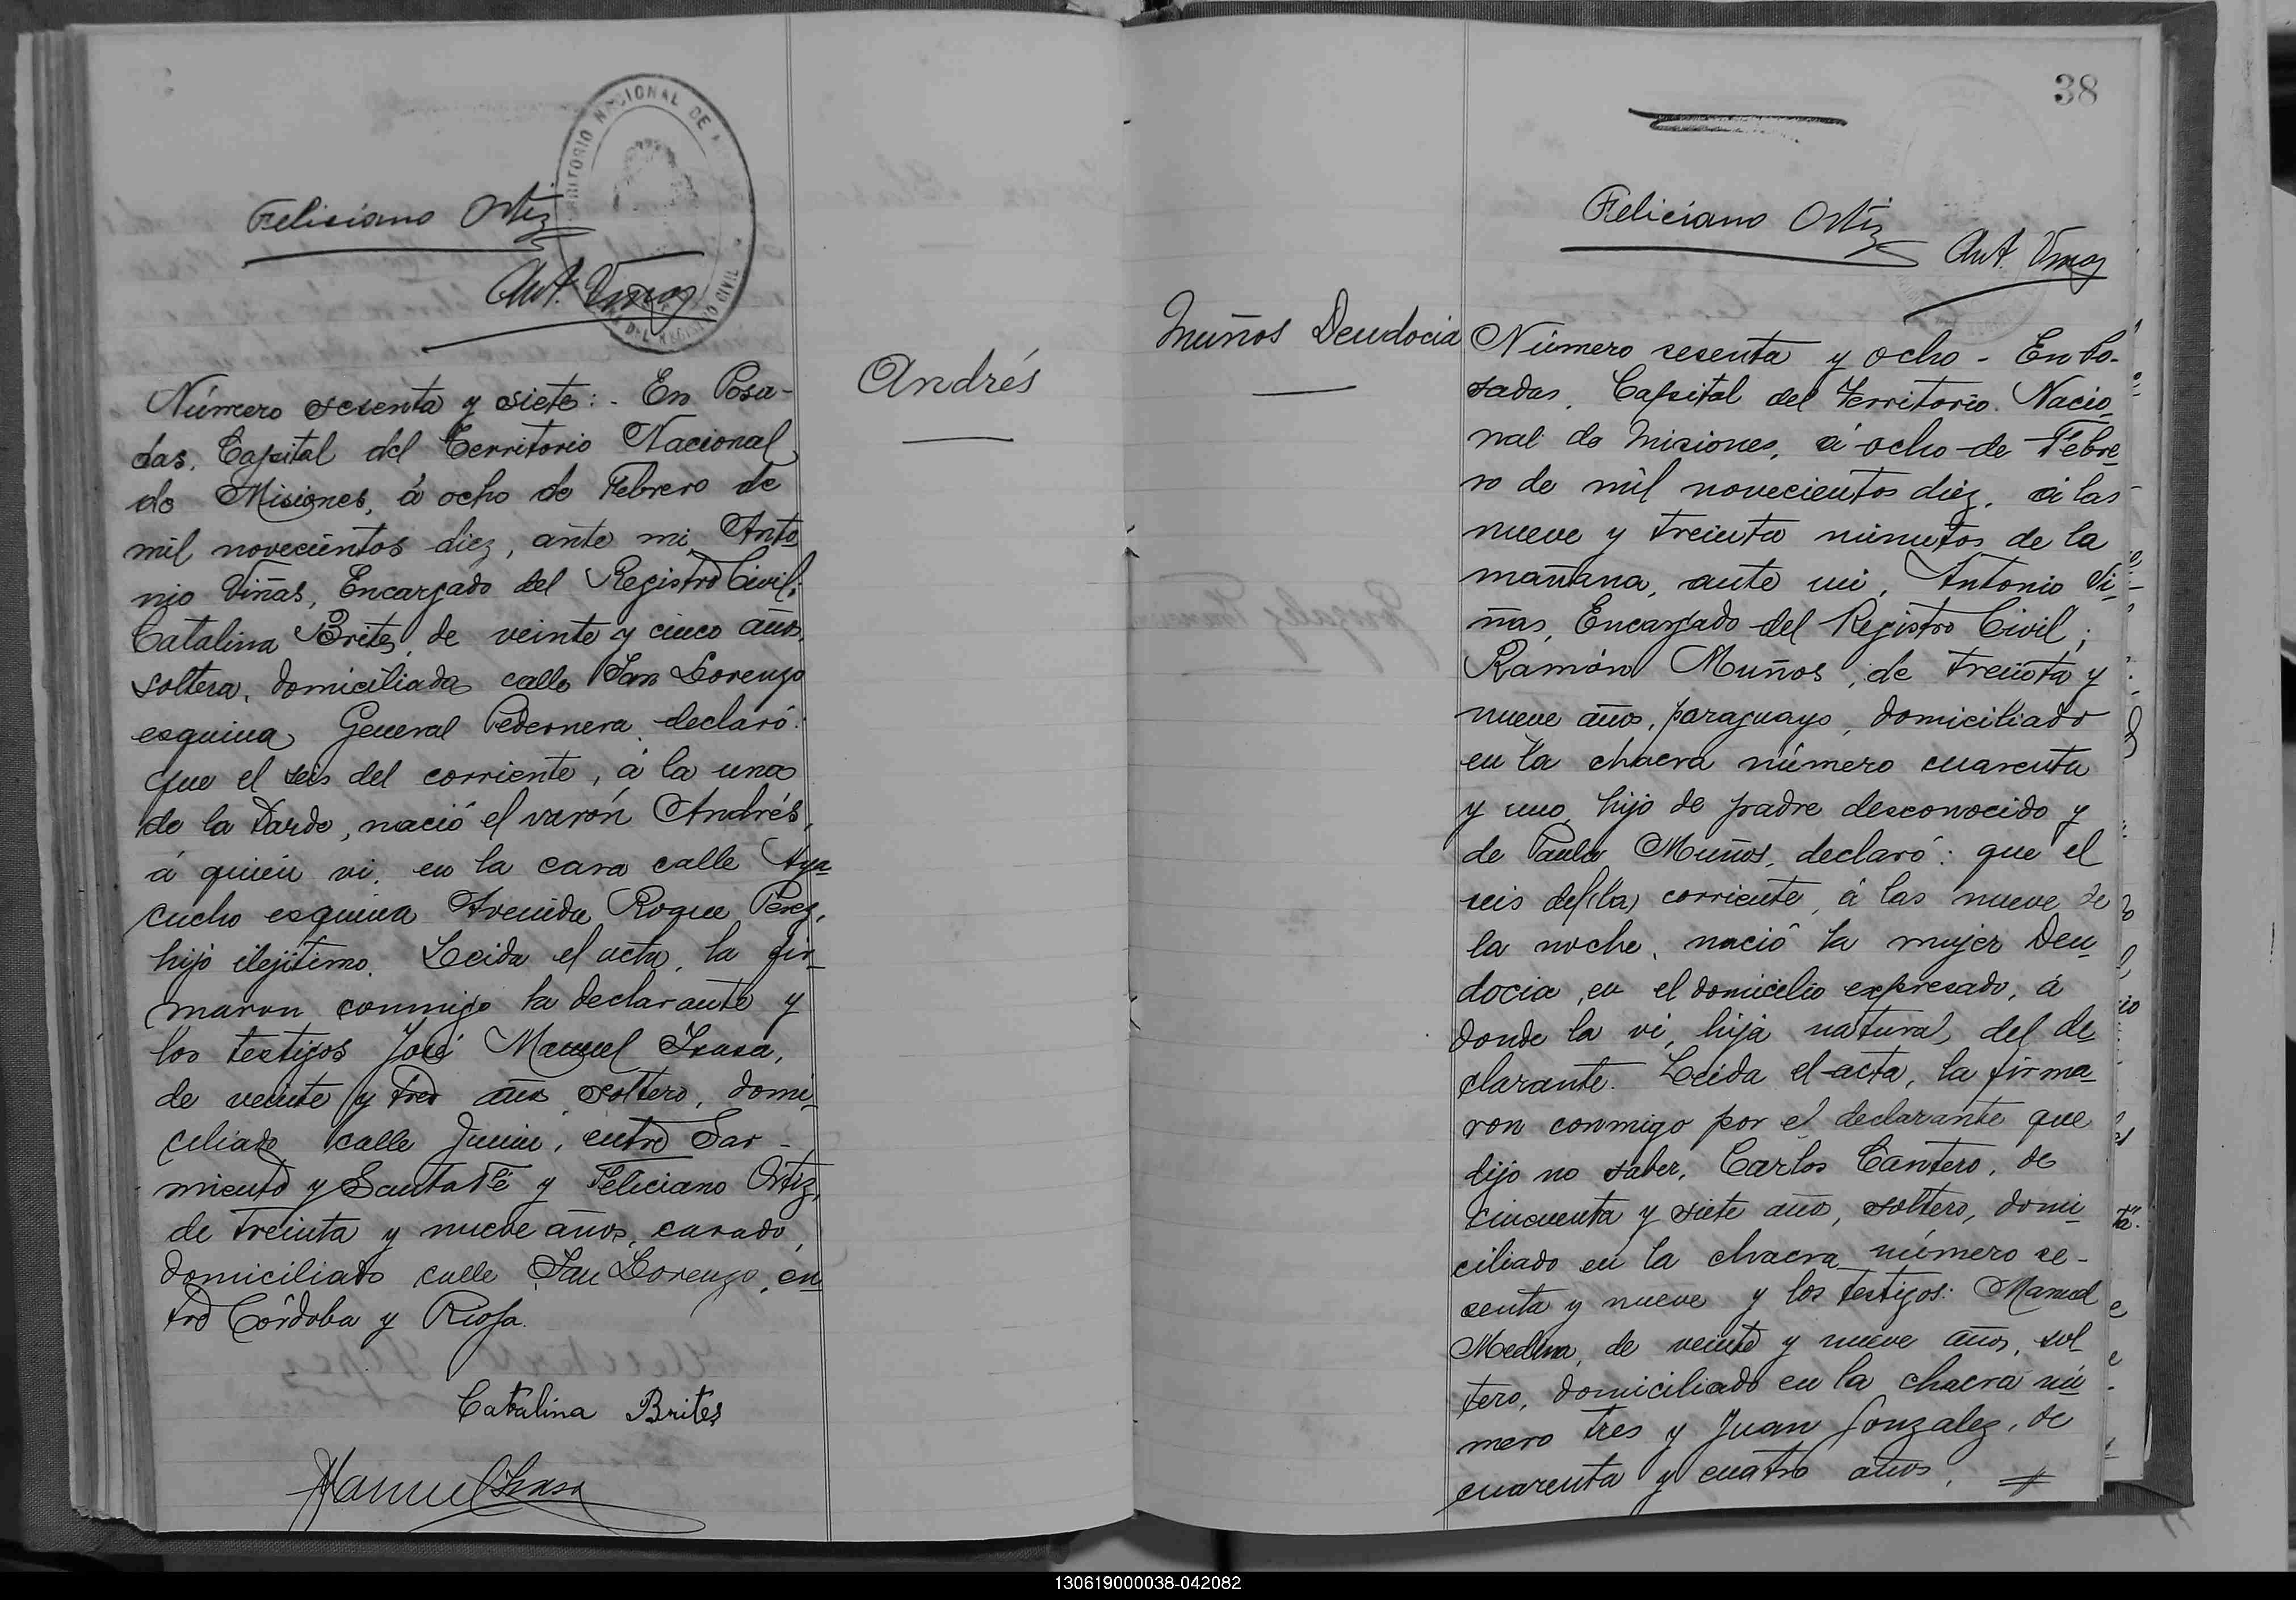 Feliciano Ortiz
TERRITORIO NACIONAL DE
DEL REGISTRO CIVIL
Ant. Vinas
Número sesenta y siete:- En Posa-
das, Capital del Territorio Nacional
de Misiones, á ocho de Febrero de
mil novecientos diez, ante mi Anto
nio Viñas, Encargado del Registro Civil;
Catalina Brites, de veinte y cinco años,
soltera, domiciliada calle San Lorenzo
esquina General Pedernera, declaró:
que el seis del corriente, á la una
de la tarde, nació el varón Andrés,
á quién vi, en la casa calle Aya
cucho esquina Avenida Roque Perez,
hijo ilejítimo. Leida el acta, la fir_
maron conmigo la declarante y
los testigos José Manuel Isasa,
de veinte y tres años, soltero, domi_
ciliado calle Junin, entre Sar-
miento y Santa Fé y Feliciano Ortiz,
de treinta y nueve años, casado,
domiciliado calle San Lorenzo, en
tre Córdoba y Rioja.
Catalina Brites
Manuel Isasa
Andrés
Muños Deudocia
38
Feliciano Ortiz
Ant. Vinas
Número sesenta y ocho - En Po-
sadas, Capital del Territorio Nacio_
nal de Misiones, á ocho de Febre_
ro de mil novecientos diez, á las
nueve y treinta minutos de la
mañana, ante mi, Antonio Vi_
ñas, Encargado del Registro Civil;
Ramón Muños, de treinta y
nueve años, paraguayo, domiciliado
en la chacra número cuarenta
y uno, hijo de padre desconocido y
de Paula Muños, declaró: que el
seis del (la) corriente, á las nueve de
la noche, nació la mujer Deu_
docia, en el domicilio expresado, á
donde la vi, hija natural del de_
clarante. Leida el acta, la firma_
ron conmigo por el declarante que
dijo no saber, Carlos Cantero, de
cincuenta y siete años, soltero, domi_
ciliado en la chacra número se-
senta y nueve y los testigos: Manuel
Medina, de veinte y nueve años, sol_
tero, domiciliado en la chacra nú
mero tres y Juan Gonzalez, de
cuarenta y cuatro años,
130619000038-042082